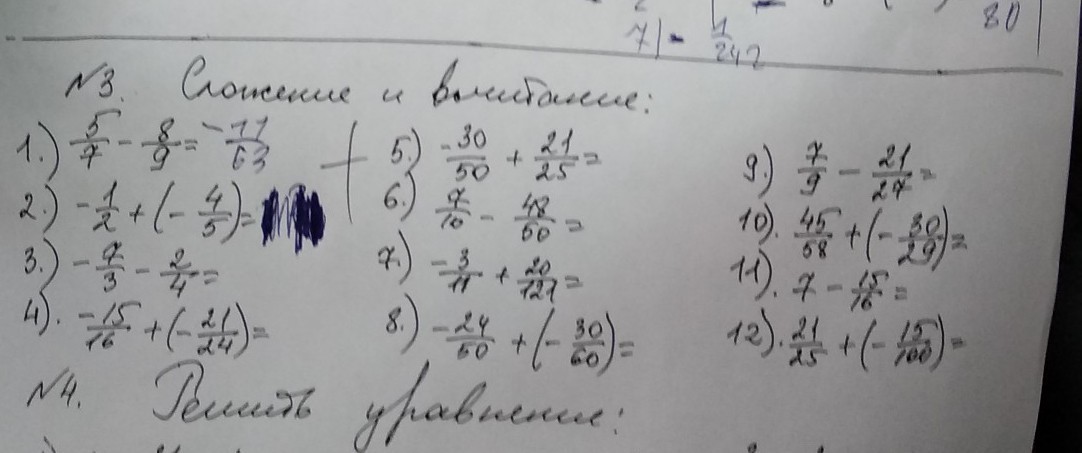 7) - 1/242
80
N3. Сложение и вычитание:
1.) 5/7 - 8/9 = -11/63
2.) -1/2 + (-4/5) =
3.) -7/3 - 2/4 =
4). -15/16 + (-21/24) =
5.) -30/50 + 21/25 =
6.) 7/10 - 48/50 =
7.) -3/11 + 20/121 =
8.) -24/50 + (-30/60) =
9.) 7/9 - 21/27 =
10). 45/58 + (-30/29) =
11). 7 - 15/16 =
12). 21/25 + (-15/100) =
N4. Решить уравнение: